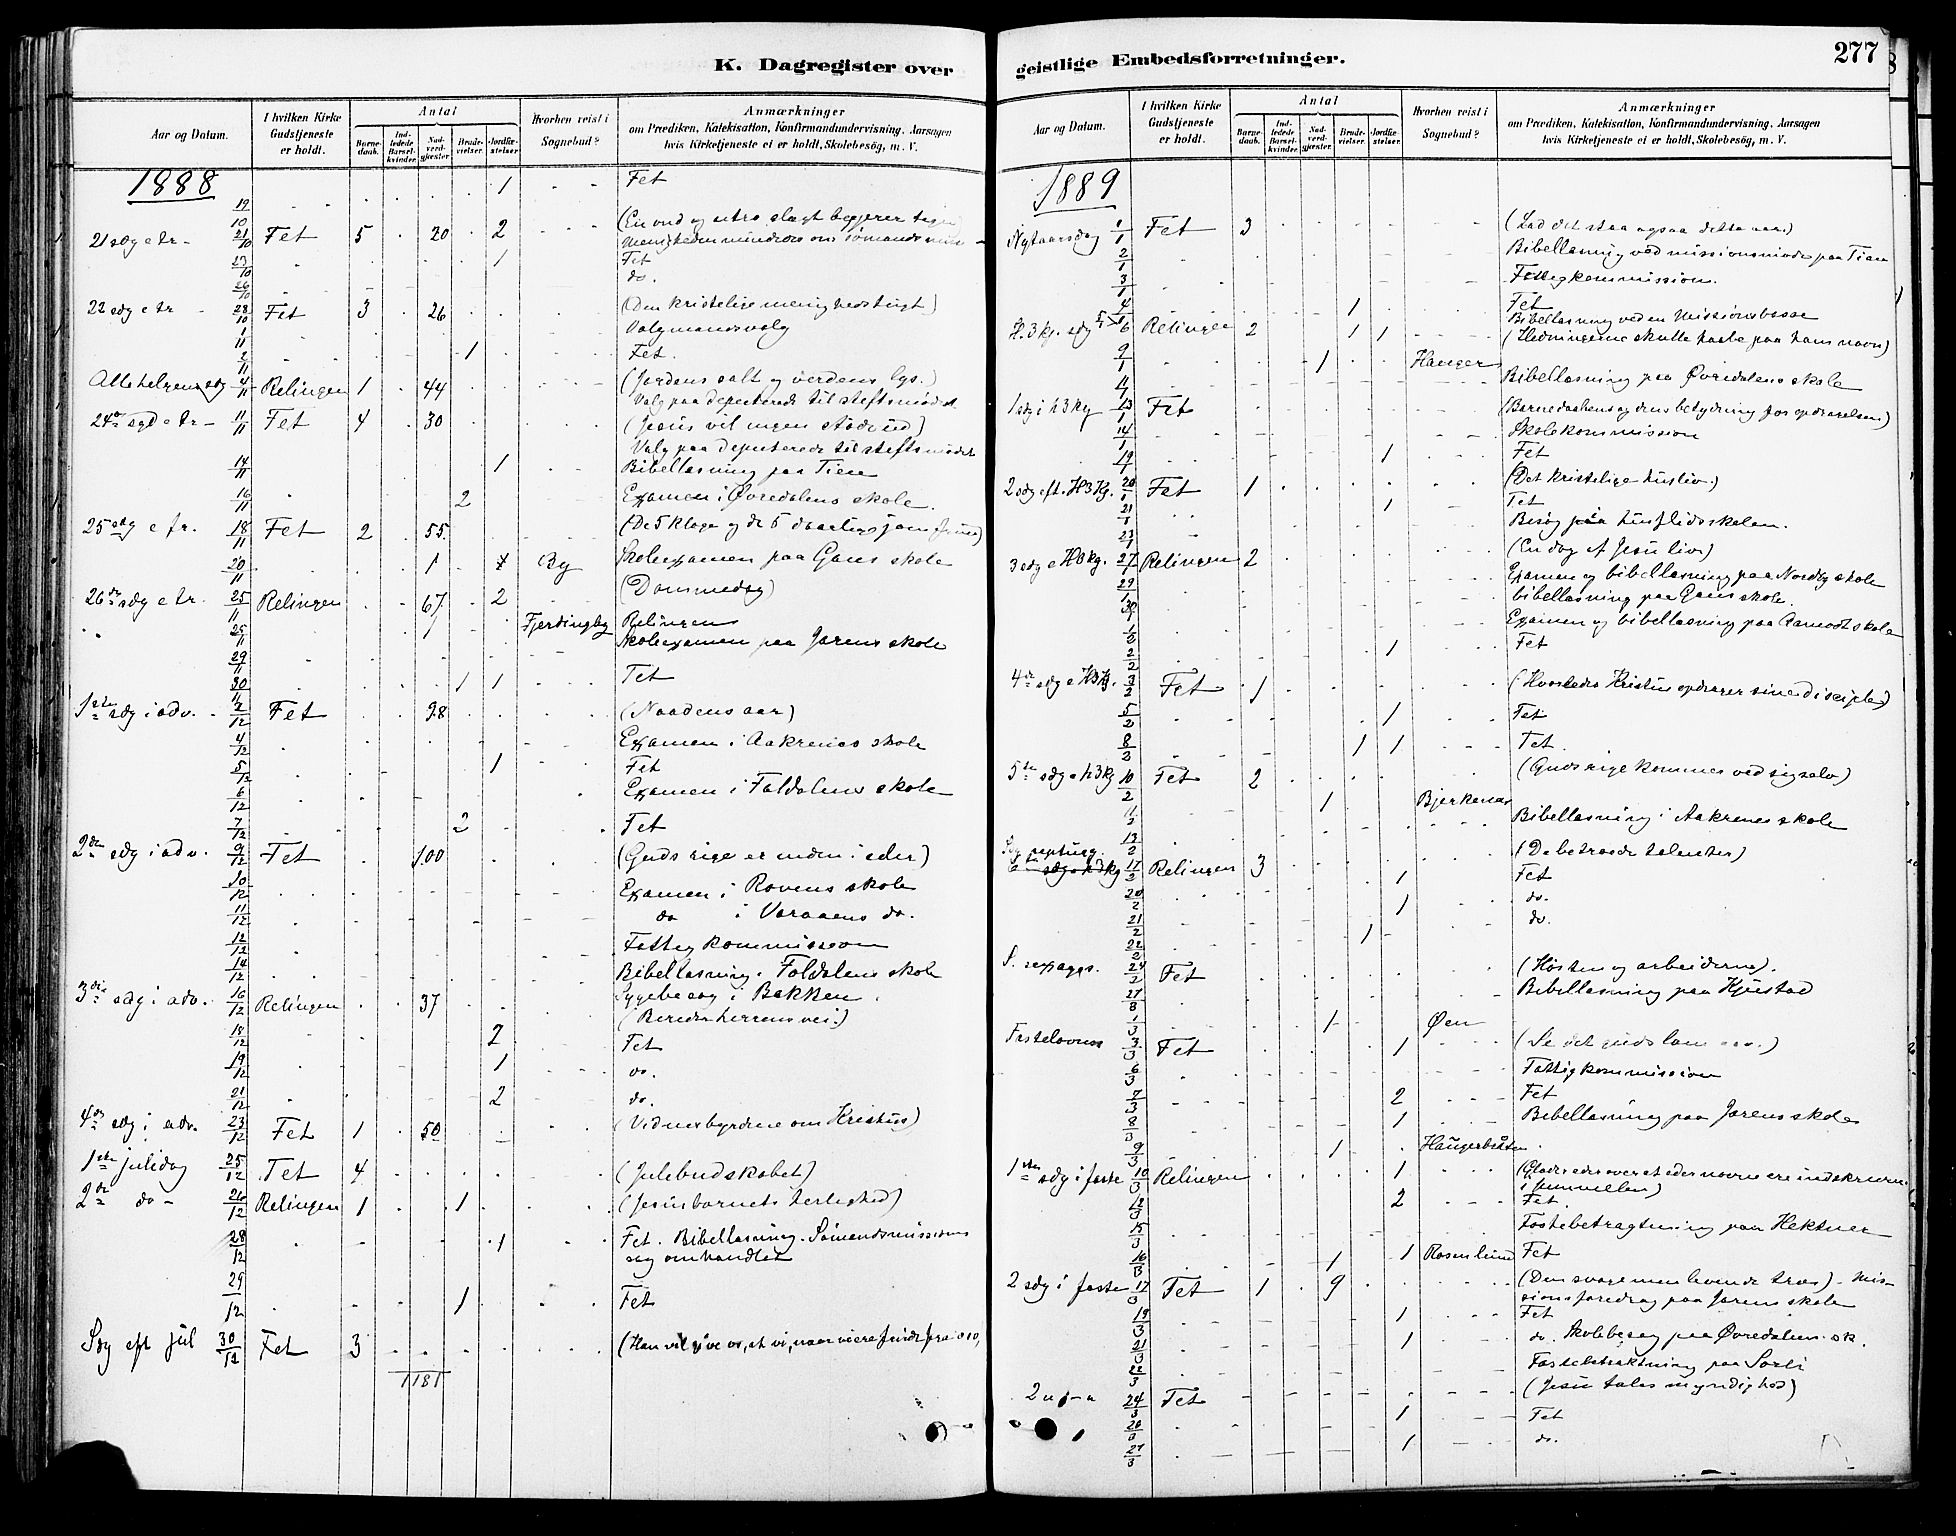 K. Dagregister over
Aar og Datum.
I hvilken Kirke Gudstjeneste er holdt.
Antal
Barnedaab.
Indledede Barselkvinder.
Nadverdgjester.
Brudevielser.
Jordfæstelser.
Hvorhen reist i Sognebud?
Anmærkninger
om Prædiken, Katekisation, Konfirmandundervisning, Aarsagen
hvis Kirketjeneste ei er holdt, Skolebesög, m. V.
1888
19/10 1 Fet
21 sdg e tr - 21/10 Fet 5 20 2 (En ond og utro slægt begjerer tegn)
Menigheden mindedes om sømandsmis-
23/10 1 Fet
26/10 do.
22 sdg e tr - 28/10 Fet 3 26 (Den kristelige menighedstugt)
1/11 Valgmandsvalg
2/11 1 Fet.
Allehelgensdg 4/11 Relingen 1 44 (Jordens salt og verdens lys.)
Valg paa deputerede til stiftsmødet
24de sgd e tr - 11/11 Fet 4 30 (Jesus vil ingen støde ud)
Valg paa deputerede til stiftsmødet
14/11 1 Bibellæsning paa Tien
16/11 2 Examen i Øvredalens skole
25 sdg e tr. 18/11 Fet 2 55 (De 5 kloge og de 5 daarlige jomfruer)
20/11 1 By Skoleexamen paa Gans skole
26de sdg e tr. 25/11 Relingen 67 2 (Dommedag)
" 25/11 1 Fjerdingby Relingen
29/11 Skoleexamen paa Jarens skole
30/11 1 1 Fet
1ste sdg i adv. - 2/12 Fet 28 (Naadens aar)
4/12 Examen i Aakrenes skole
5/12 1 Fet
6/12 Examen i Faldalens skole
7/12 2 Fet
2den sdg i adv. 9/12 Fet 100 (Guds rige er inden i eder)
10/12 Examen i Rovens skole
11/12 do i Varaaens do.
12/12 Fattigkommission
14/12 Bibellæsning. Faldalens skole
3die sdg i adv. 16/12 Relingen 37 Sygebesøg i Bakken
(Bereder herrens vei.)
18/12 2 Fet
19/12 1 do.
21/12 2 do.
4de sdg i adv. 23/12 Fet 1 50 (Vidnesbyrdene om Kristus)
1ste juledag 25/12 Fet 4 (Julebudskabet)
2den do - 26/12 Relingen 1 1 (Jesusbarnets herlighed)
28/12 1 Fet. Bibellæsning. Sømandsmissions
sag omhandlet
29/12 1 Fet
Sdg eft jul 30/12 Fet 3 (Han vil give os, at vi, naar vi ere friede fra o.s.v.
1181
geistlige Embedsforretninger.
277
Aar og Datum.
I hvilken Kirke Gudstjeneste er holdt.
Antal
Barnedaab.
Indledede Barselkvinder.
Nadverdgjester.
Brudevielser.
Jordfæstelser.
Hvorhen reist i Sognebud?
Anmærkninger
om Prædiken, Katekisation, Konfirmandundervisning, Aarsagen
hvis Kirketjeneste ei er holdt, Skolebesög, m. V.
1889
Nytaarsdag 1/1 Fet 3 (Lad det staa ogsaa dette aar)
2/1 Bibellæsning ved missionsmøde paa Tien
3/1 Fattigkommission.
4/1 1 Fet
5/1 Bibellæsning ved en Missionsbasar
H. 3 kg. sdg 6/1 Relingen 2 1 1 (Hedningerne skulle haabe paa hans navn)
9/1 1 Hauger
11/1 Bibellæsning paa Øvredalens skole
1 sdg i h3kg 13/1 Fet (Barnedaabens og dens betydning for opdragelsen)
14/1 Skolekommission
19/1 1 Fet
2 sdg eft. H3Kg. 20/1 Fet 1 (Det kristelige husliv.)
21/1 1 Fet
23/1 Besøg paa husflidsskolen.
3 sdg e H3kg. 27/1 Relingen 2 (En dag af Jesu liv)
29/1 Examen og bibellæsning paa Nordby skole
30/1 bibellæsning paa Gans skole.
1/2 Examen og bibellæsning paa Aamodt skole
2/2 1 Fet
4de sdg e H3Kg. 3/2 Fet 1 (Hvorledes Kristus opdrager sine disciple)
5/2 1 Fet
8/2 1 1 Fet.
5te sdg e h3kg 10/2 Fet 2 (Guds rige kommer ved sig selv)
11/2 1 Bjerkenas
13/2 Bibellæsning i Aakrenes skole
Sdg septuag. 17/2 Relingen 3 (De betroede talenter)
20/2 1 Fet
21/2 1 do.
22/2 1 do.
S. sexages. 24/2 Fet (Høsten og arbeiderne).
27/2 Bibellæsning paa Hjustad
1/3 1 Øen
Fastelavns 3/3 Fet 1 (Se det guds lam o.s.v.)
6/3 Fattigkommission
7/3 2 Fet
8/3 1 Bibellæsning paa Jarens skole
9/3 1 Haugerbråten
1ste sdg i faste 10/3 Relingen 1 (Glæder eder over at eders navne ere indskrevne
i himmelen)
12/3 2 Fet
15/3 Fastebetragtning paa Hektner
16/3 1 1 Rosenlund Fet
2 sdg i faste 17/3 Fet 1 9 (Den svage men levende tro) - Mis-
sionsforedrag paa Jarens skole
19/3 1 Fet
21/3 1 do. Skolebesøg paa Øvredalen sk.
22/3 Fastebetraktning paa Sørli
24/3 Fet (Jesu tales myndighed)
1 Fet
27/3 1 do.